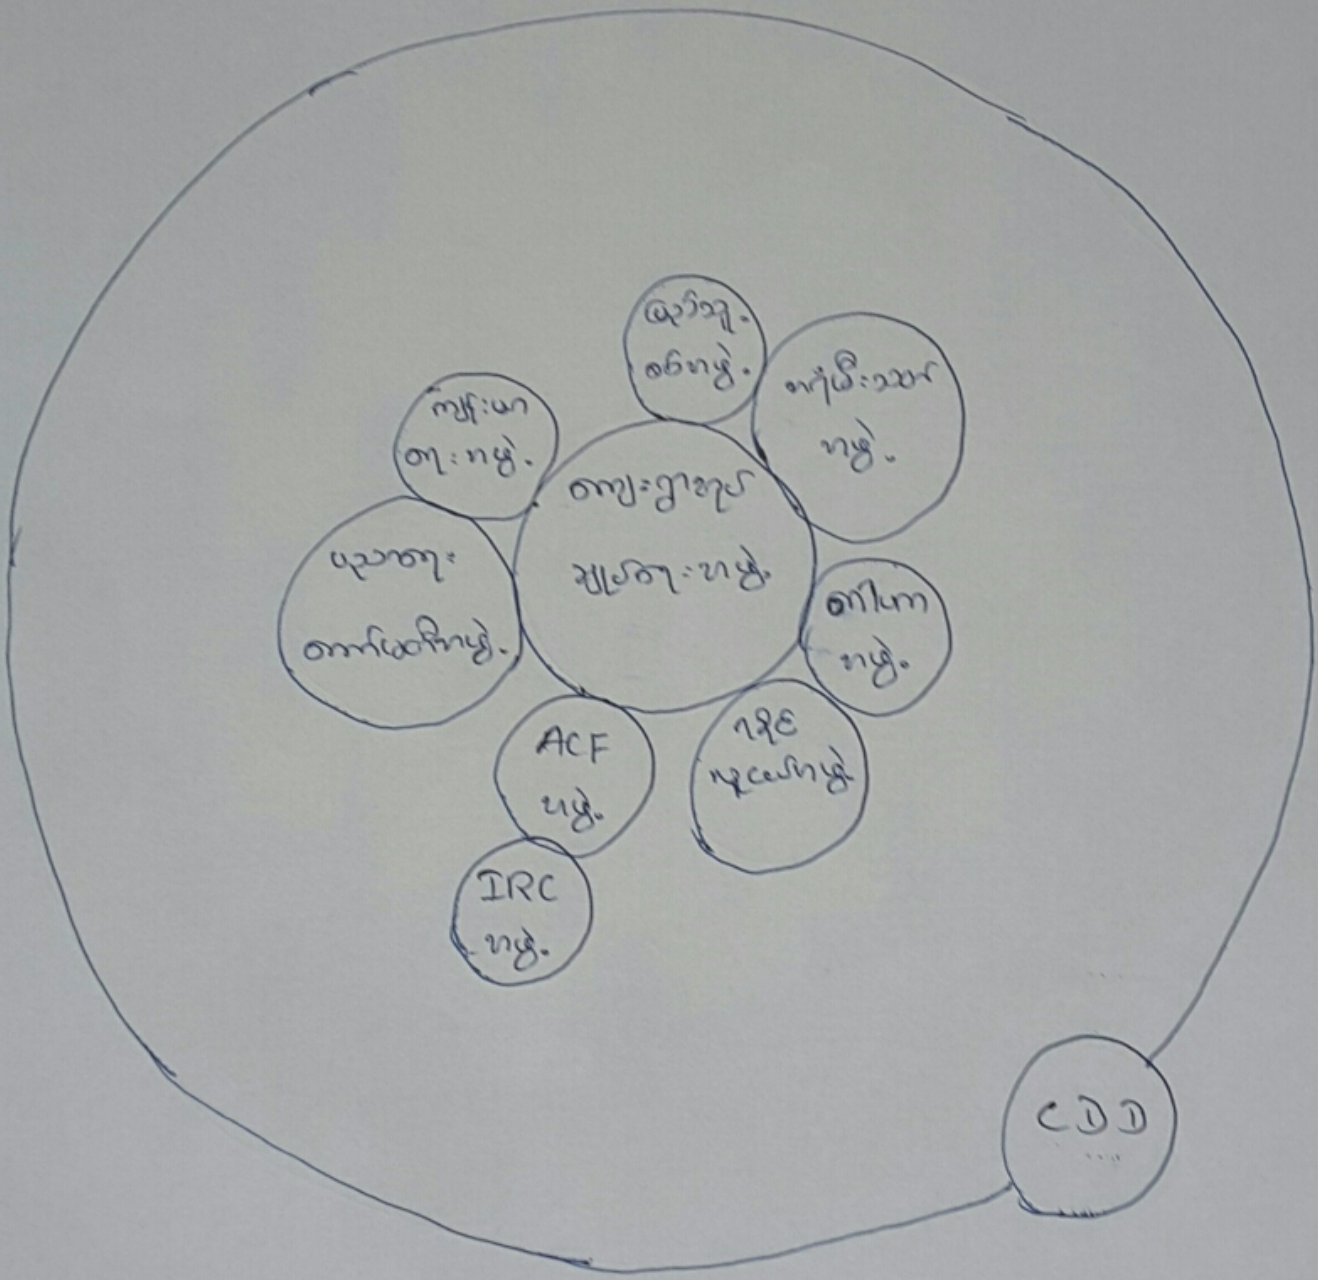 ပြည်သူ့
စစ်အဖွဲ့
အမျိုးသမီး
အဖွဲ့
ကျန်းမာ
ရေးအဖွဲ့
ကျေးရွာအုပ်
ချုပ်ရေးအဖွဲ့
ပညာရေး
ကော်မတီအဖွဲ့
အဖွဲ့
ACF
အဖွဲ့
လူငယ်အဖွဲ့
IRC
အဖွဲ့
CDD